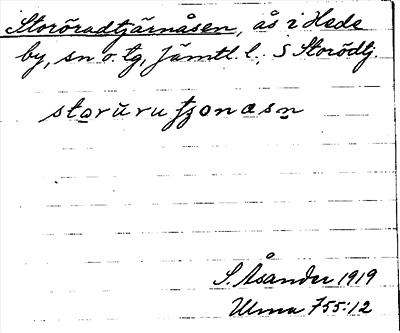 Storöradtjärnåsen, ås i Hede
by, sn o. tg, Jämtl. l.; S Storödtj.
storurutjonasn
S. Åsander 1919
Ulma 755:12